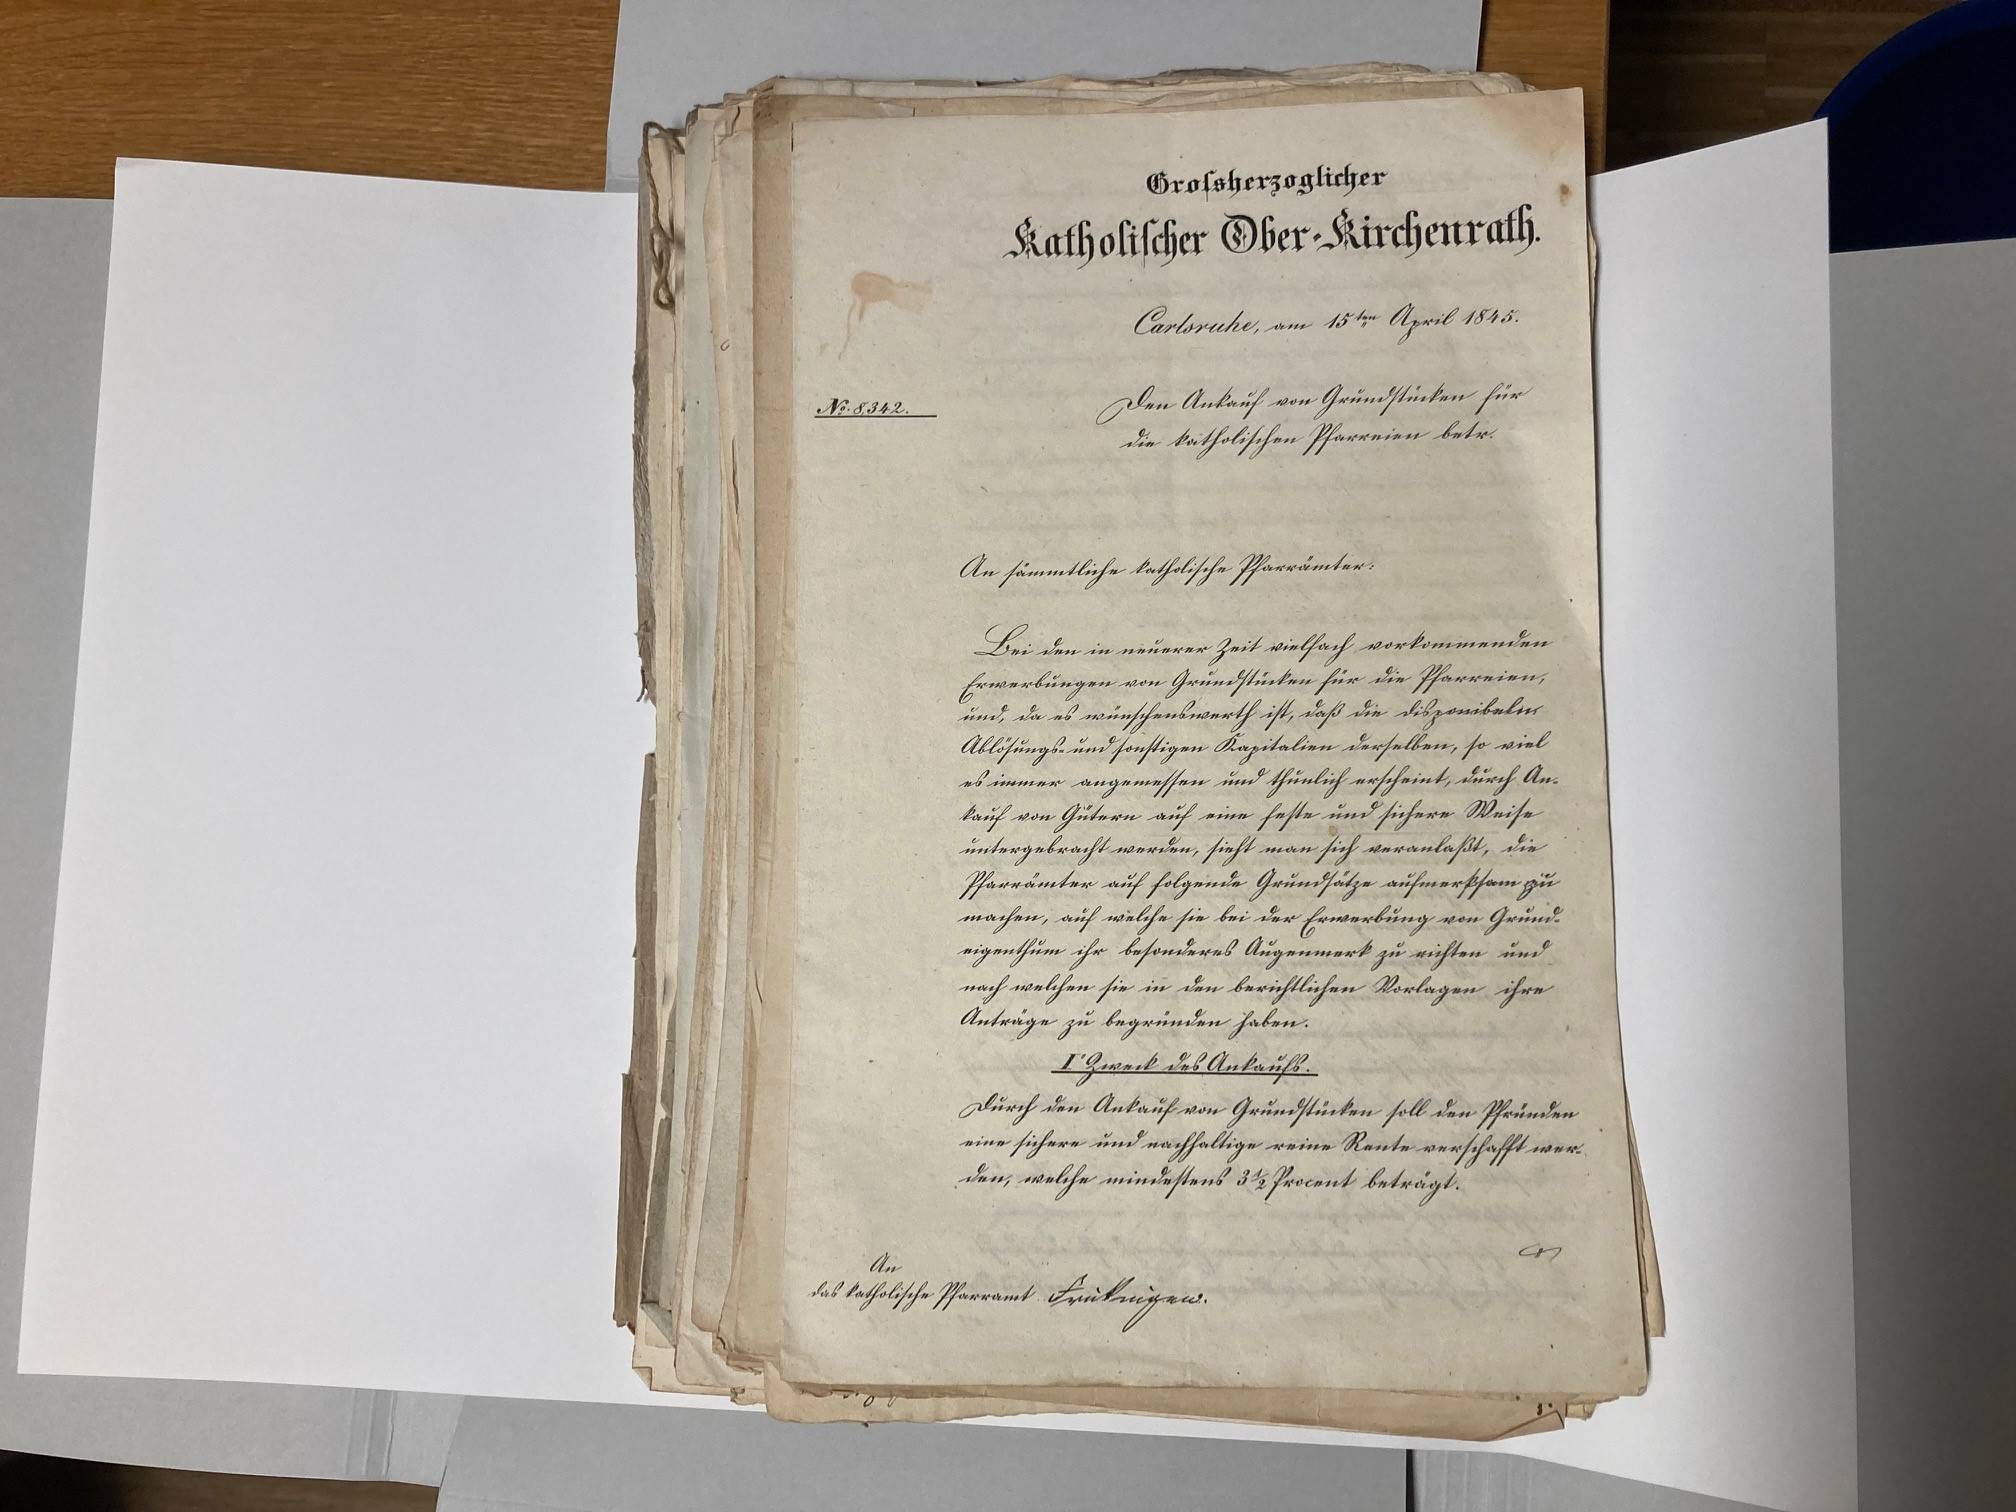 Grossherzoglicher
Katholischer Ober-Kirchenrath.
Carlsruhe, am 15ten April 1845.
No. 8,342.
Den Ankauf von Grundstücken für
die katholischen Pfarreien betr.
An sämmtliche katholische Pfarrämter:
Bei den in neuerer Zeit vielfach vorkommenden
Erwerbungen von Grundstücken für die Pfarreien,
und, da es wünschenswerth ist, daß die disponibeln
Ablösungs- und sonstigen Kapitalien derselben, so viel
es immer angemessen und thunlich erscheint, durch An-
kauf von Gütern auf eine feste und sichere Weise
untergebracht werden, sieht man sich veranlaßt, die
Pfarrämter auf folgende Grundsätze aufmerksam zu
machen, auf welche sie bei der Erwerbung von Grund-
eigenthum ihr besonderes Augenmerk zu richten und
nach welchen sie in den berichtlichen Vorlagen ihre
Anträge zu begründen haben.
I. Zweck des Ankaufs.
Durch den Ankauf von Grundstücken soll den Pfründen
eine sichere und nachhaltige reine Rente verschafft wer-
den, welche mindestens 3 1/2 Procent beträgt.
An
das katholische Pfarramt